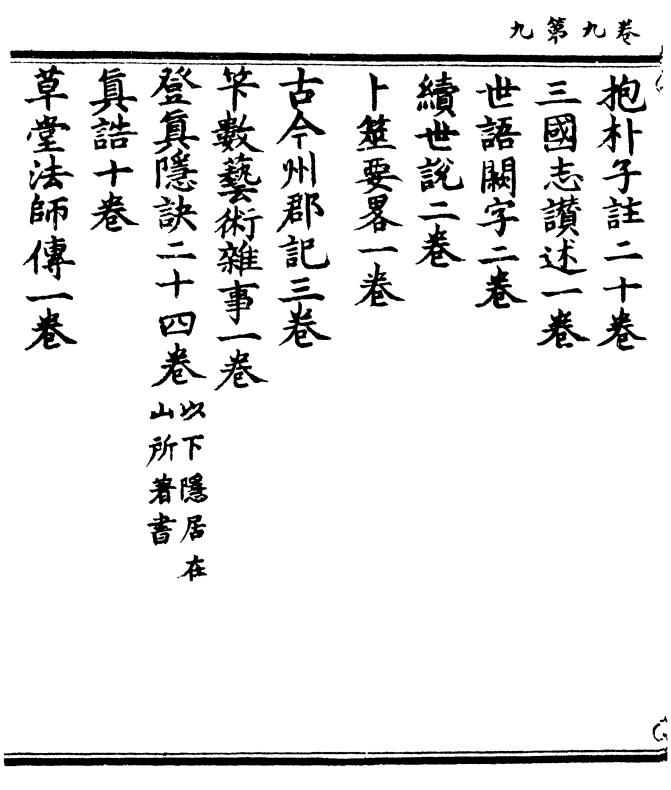 卷九第九
抱朴子註二十卷
三國志讃述一卷
世語闕字二卷
續世說二卷
卜筮要畧一卷
古今州郡記三卷
笇數藝術雜事一卷
登眞隱訣二十四卷以下隱居在山所著書
眞誥十卷
草堂法師傳一卷